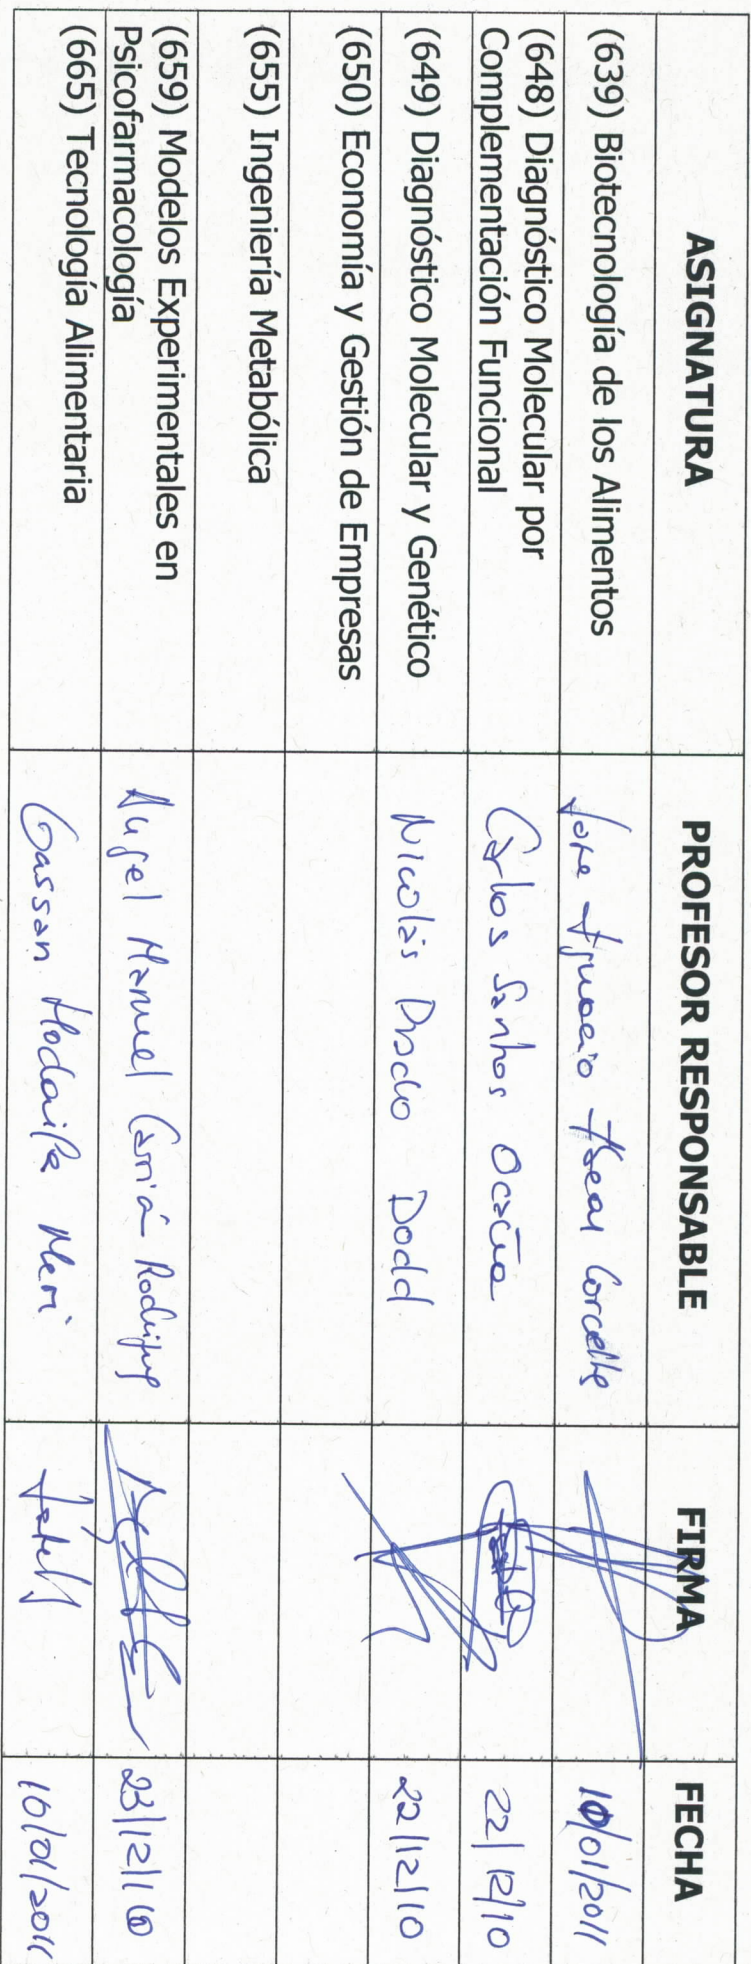 ASIGNATURA PROFESOR RESPONSABLE FIRMA FECHA
(639) Biotecnología de los Alimentos Jose Ignacio 10/01/2011
(648) Diagnóstico Molecular por
Complementación Funcional Carlos Santos Ocaña 22/12/10
(649) Diagnóstico Molecular y Genético Nicolás Prado Dodd 22/12/10
(650) Economía y Gestión de Empresas
(655) Ingeniería Metabólica
(659) Modelos Experimentales en
Psicofarmacología Angel Manuel Carrión Rodríguez 23/12/10
(665) Tecnología Alimentaria Gassan Hodaifa Meri 10/01/2011